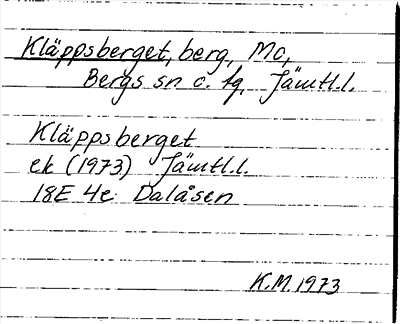 Kläppsberget, berg, Mo,
Bergs sn o. tg, Jämtl.l.
Kläppsberget
ek (1973) Jämtl.l.
18E 4e Dalåsen
K.M. 1973